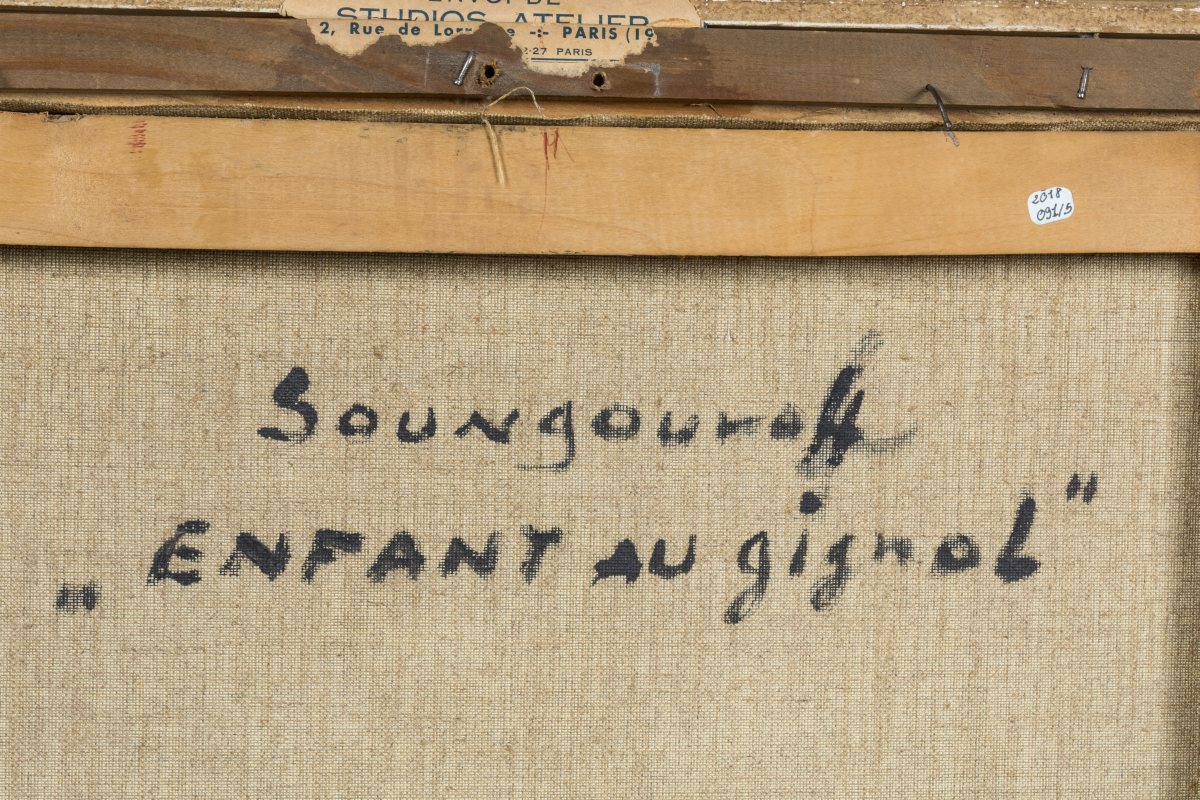 ENVOI DE
STUDIOS ATELIER
2, Rue de -:- PARIS (19
2-27 PARIS
2018
091/5
Soungouroff
„ENFANT AU gignol"